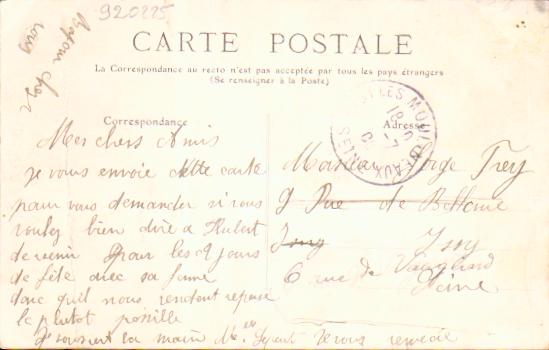 920225
Bonjour chez
vous
CARTE POSTALE
La Correspondance au recto n'est pas acceptée par tous les pays étrangers
(Se renseigner à la Poste)
Correspondance
Adresse
LES MOULINEAUX
Mes chers Amis
je vous envoie cette carte
pour vous demander si vous
voulez bien dire a Hubert
de venir pour les 2 jours
de fête avec sa fame
donc qu'il nous rendent reponse
le plutot possible
Je vous sert la main
Je vous remercie
Monsieur Serge Frey
9 Rue de
Issy
6 rue de Vaugirard
Seine